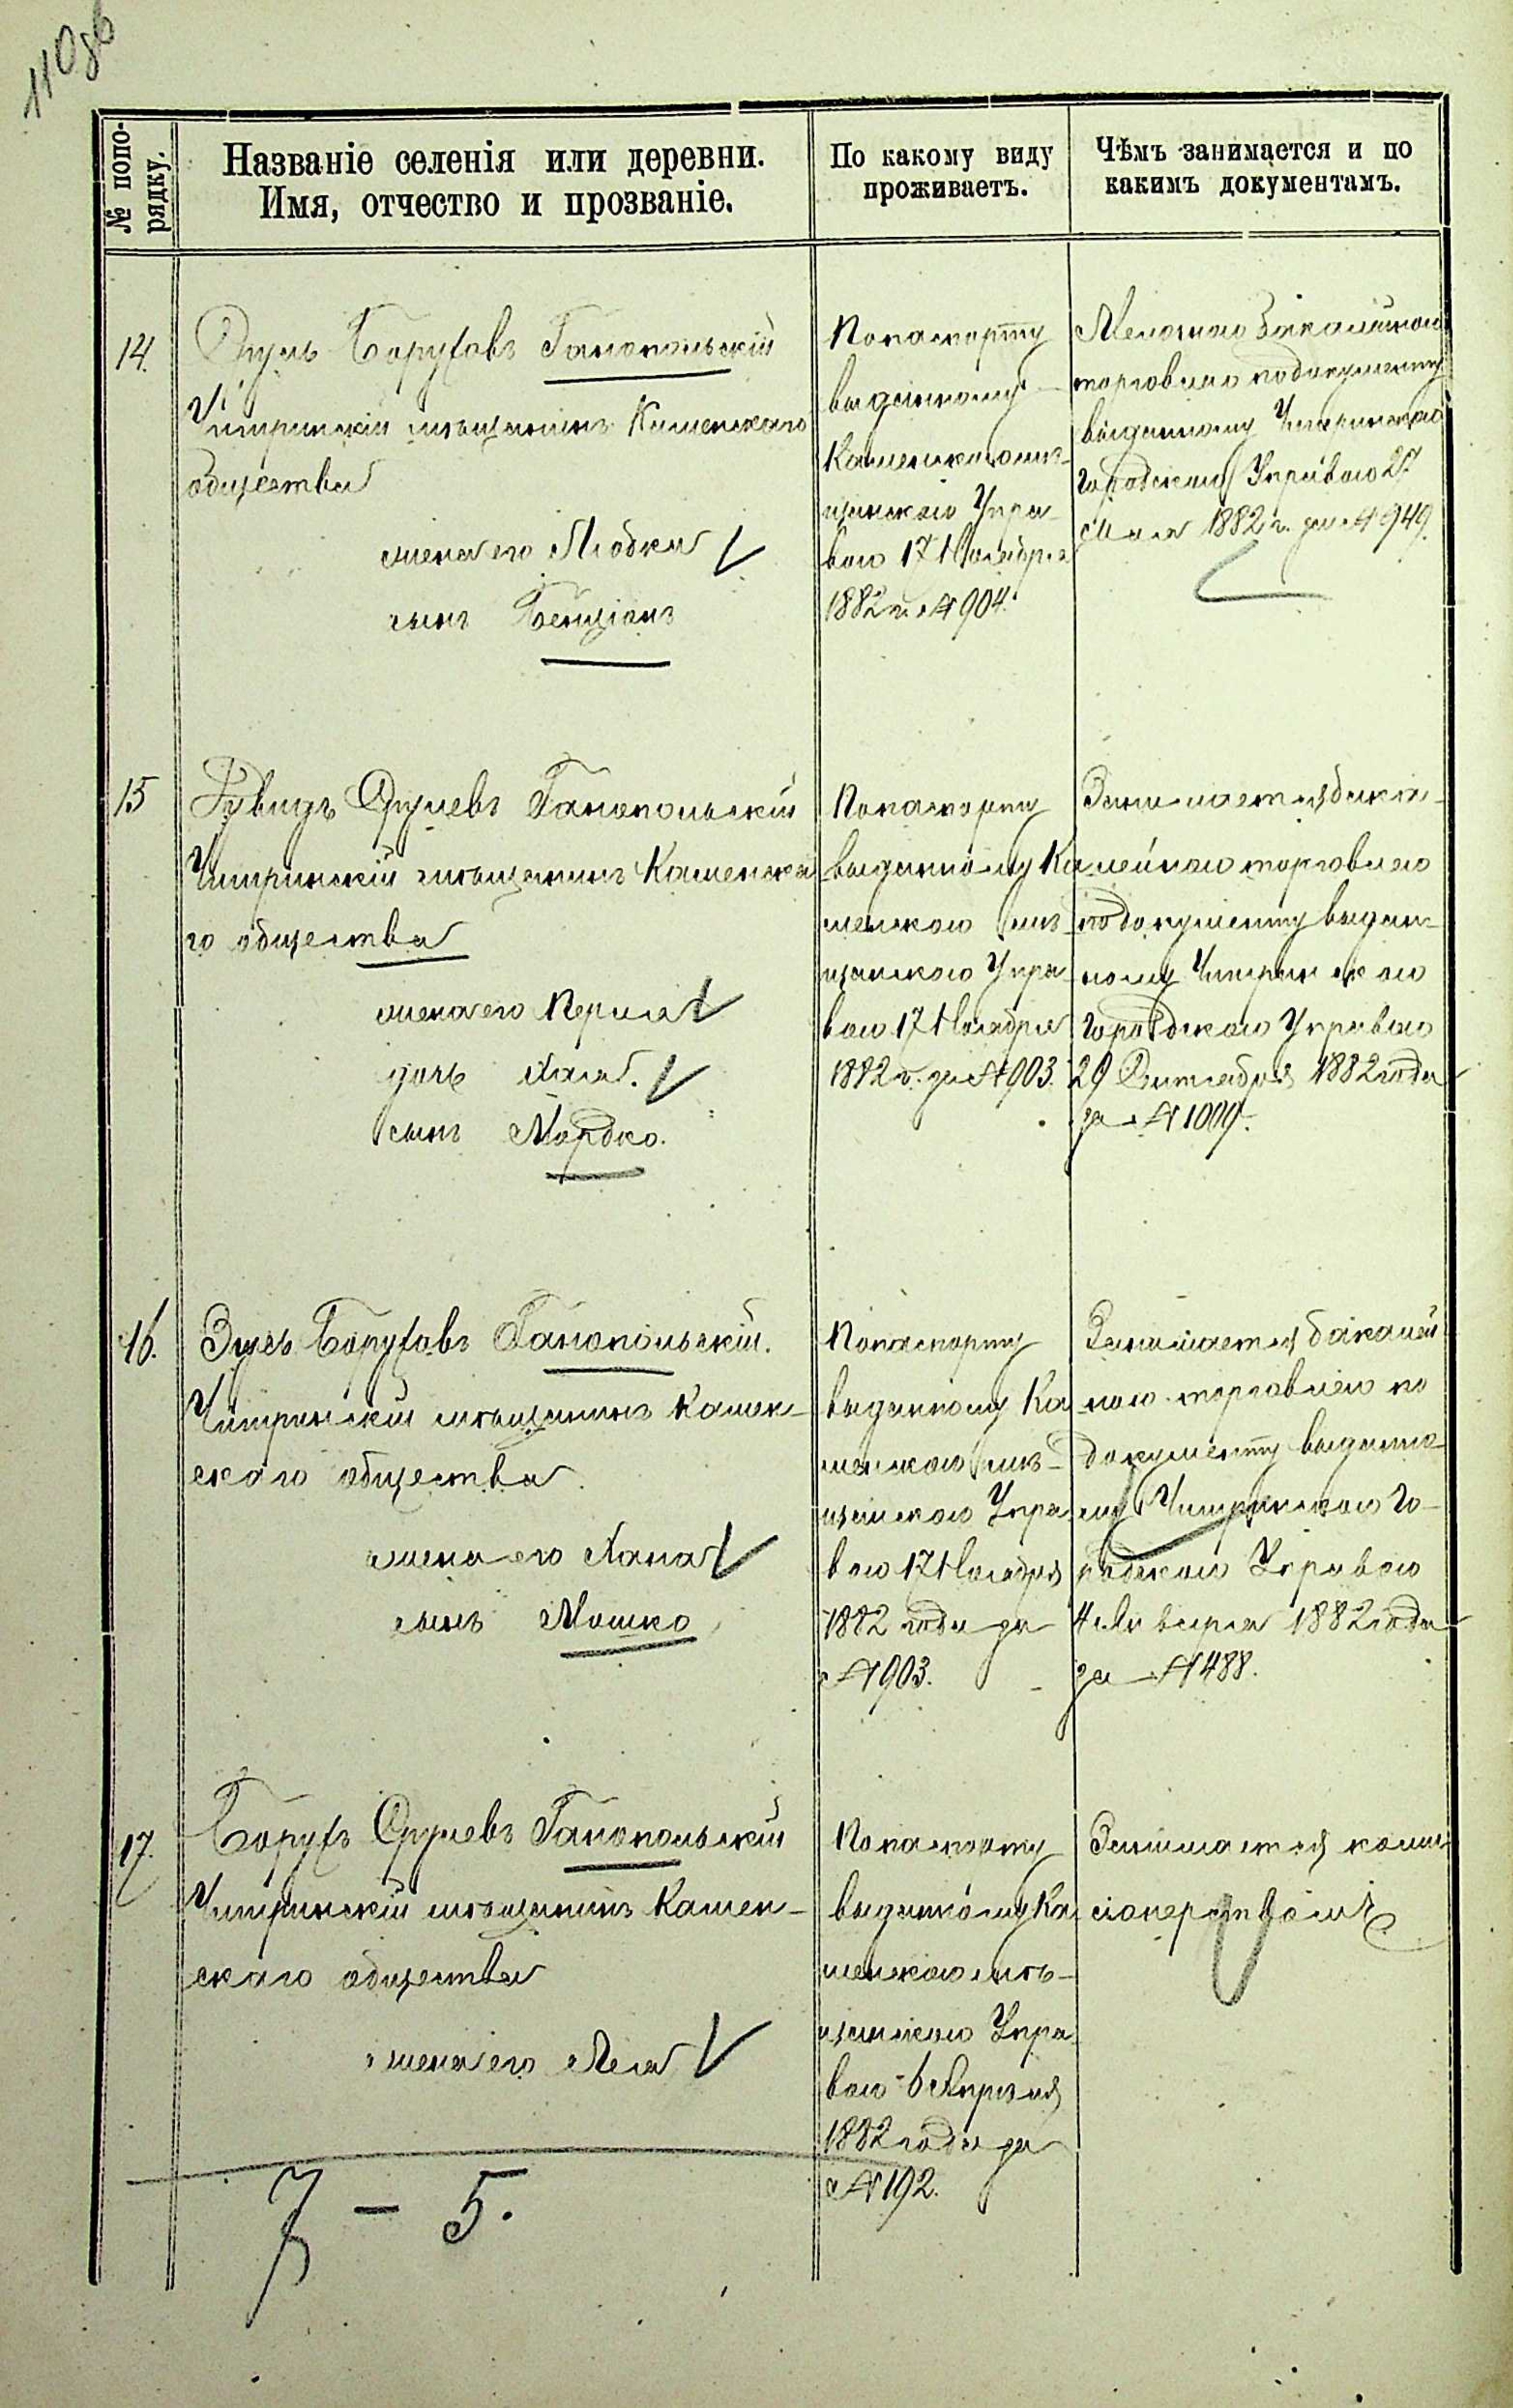 110об
№ по по-
рядку.
Названіе селенія или деревни.
Имя, отчество и прозваніе.
По какому виду
проживаетъ.
Чѣмъ занимается и по
какимъ документамъ.
14.
Боруховъ Ганопольскій
Чигринскій мѣщанинъ Каменскаго
общества
жена его Людка
сынъ Бенціонъ
По паспорту
выданному
Каменскою мѣ-
щанскою Упра-
вою 17 Ноября
1882 г. № 904.
Мелочною бакалейною
торговлею по документу
выданному Чигринскою
Городскою Управою 27
Мая 1882 г. за № 949.
15
Сруліовъ Ганопольскій
Чигринскій мѣщанинъ Каменска
го общества
жена его Перля
дочь Хая.
сынъ Мордко.
По паспорту
выданному Ка
менскою мѣ-
щанскою Упра
вою 17 Ноября
1882 г. за № 903.
Занимается бака-
лейною торговлею
по документу выдан-
ному Чигринскою
Городскою Управою
29 Сентября 1882 года
за № 1009.
16.
Боруховъ Ганопольскій.
Чигринскій мѣщанинъ Камен-
скаго общества.
жена его Хана
сынъ Мошко
По паспорту
выданному Ка
менскою мѣ-
щанскою Упра
вою 17 Ноября
1882 года за
№ 903.
Занимается бакалей
ною торговлею по
документу выданно
му Чигринскою Го-
родскою Управою
4 Января 1882 года
за № 488.
17.
Борухъ Срулевъ Ганопольскій
Чигринскій мѣщанинъ Камен-
скаго общества
жена его Лея
По паспорту
выданному Ка
менскою мѣ-
щанскою Упра
вою 6 Апрѣля
1882 года за
№ 192.
Занимается комми
сіонерствомъ
7 - 5.